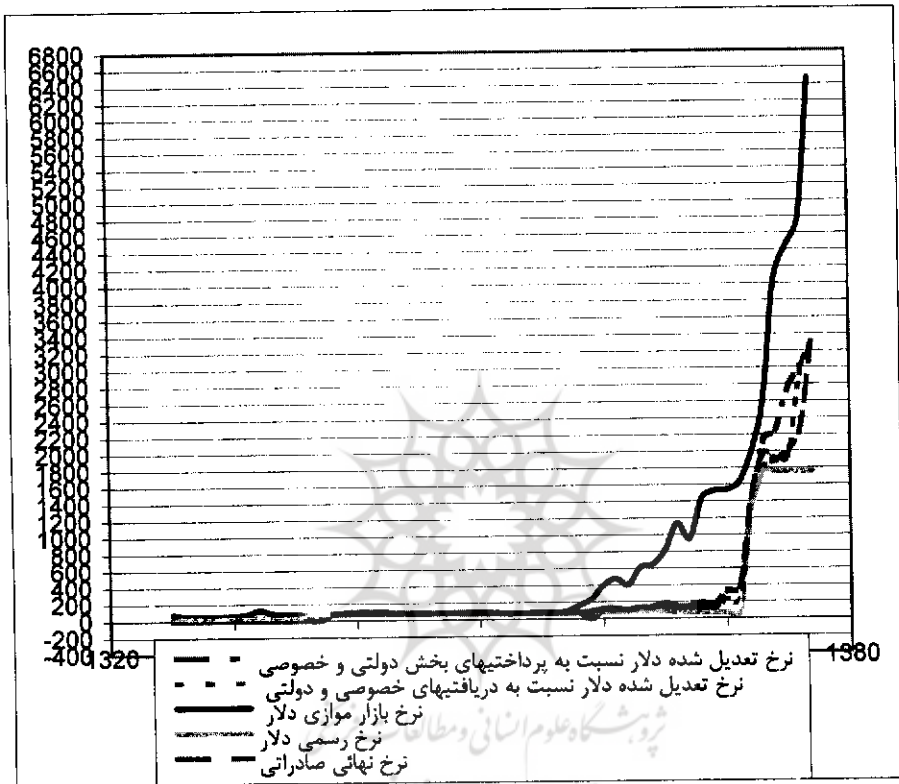 6800
6600
6400
6200
6000
5800
5600
5400
5200
5000
4800
4600
4400
4200
4000
3800
3600
3400
3200
3000
2800
2600
2400
2200
2000
1800
1600
1400
1200
1000
800
600
400
200
0
-200
-400
1320 1380
نرخ تعدیل شده دلار نسبت به پرداختیهای بخش دولتی و خصوصی
نرخ تعدیل شده دلار نسبت به دریافتیهای خصوصی و دولتی
نرخ بازار موازی دلار
نرخ رسمی دلار
نرخ نهائی صادراتی
پژوهشگاه علوم انسانی و مطالعات فرهنگی